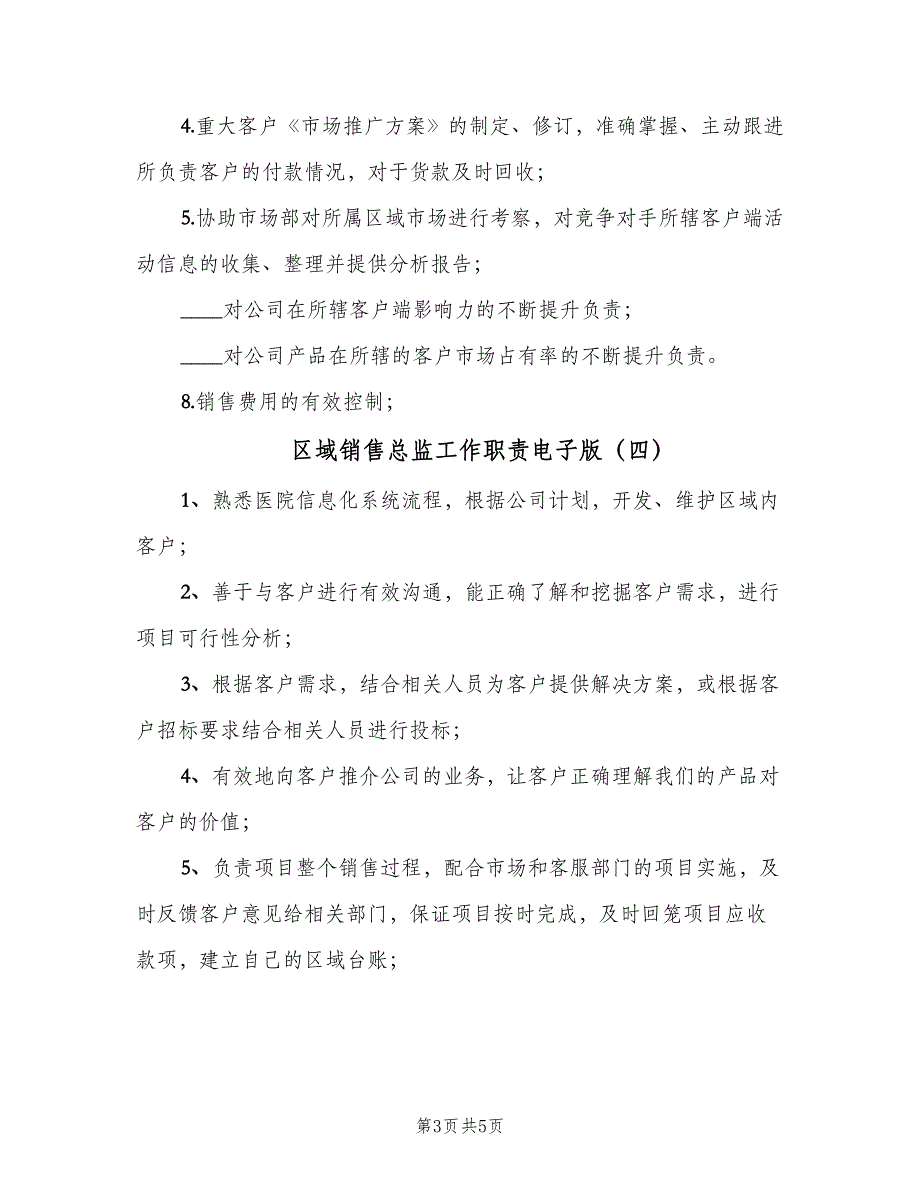 4.重大客户《市场推广方案》的制定、修订，准确掌握、主动跟进
所负责客户的付款情况，对于货款及时回收；
5.协助市场部对所属区域市场进行考察，对竞争对手所辖客户端活
动信息的收集、整理并提供分析报告；
____对公司在所辖客户端影响力的不断提升负责；
____对公司产品在所辖的客户市场占有率的不断提升负责。
8.销售费用的有效控制；
区域销售总监工作职责电子版（四）
1、熟悉医院信息化系统流程，根据公司计划，开发、维护区域内
客户；
2、善于与客户进行有效沟通，能正确了解和挖掘客户需求，进行
项目可行性分析；
3、根据客户需求，结合相关人员为客户提供解决方案，或根据客
户招标要求结合相关人员进行投标；
4、有效地向客户推介公司的业务，让客户正确理解我们的产品对
客户的价值；
5、负责项目整个销售过程，配合市场和客服部门的项目实施，及
时反馈客户意见给相关部门，保证项目按时完成，及时回笼项目应收
款项，建立自己的区域台账；
第3页共5页